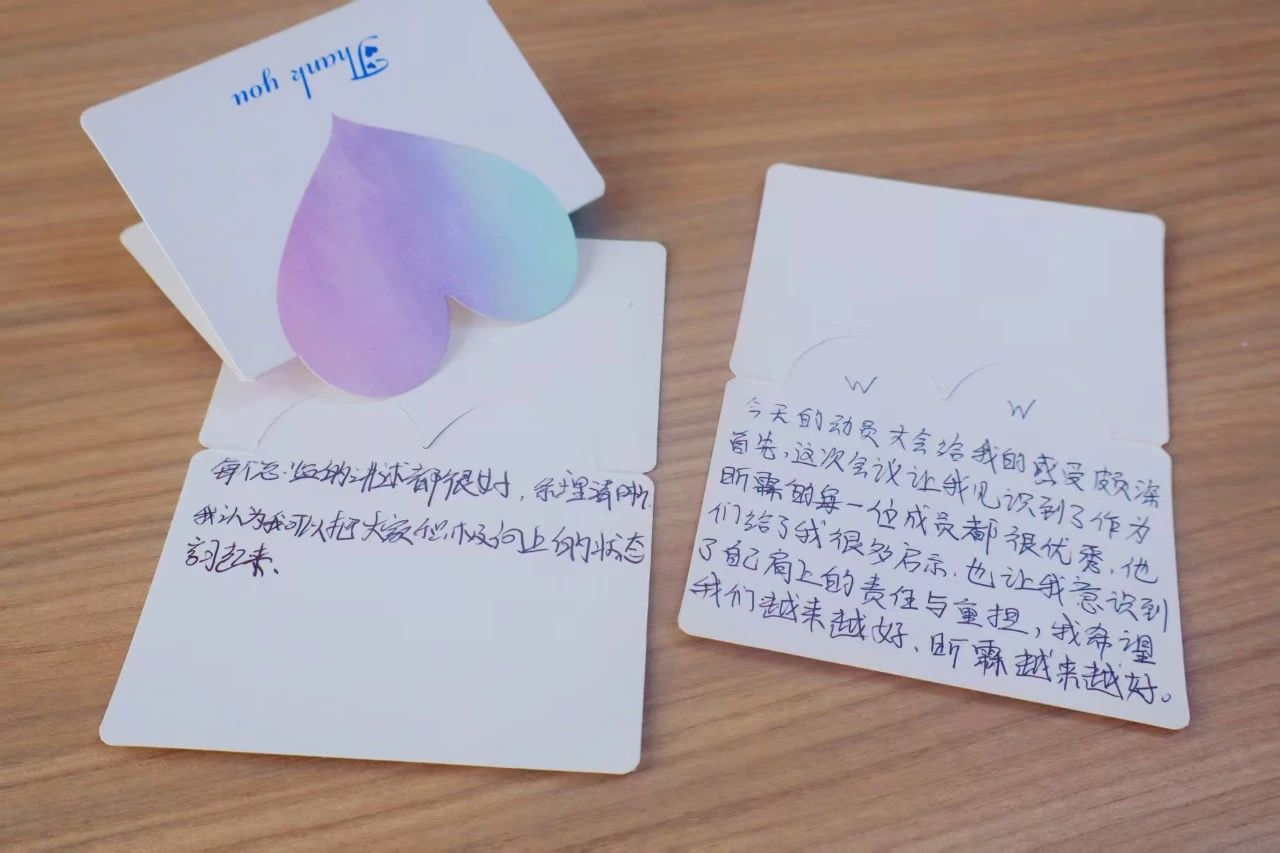 Thank you
每个总监的讲述都很好，条理清晰.
我认为我可以把大家积极向上的状态
学起来.
W
W
今天的动员大会给我的感受颇深
首先,这次会议让我见识到了作为
昕霖的每一位成员都很优秀,他
们给了我很多启示,也让我意识到
了自肩上的责任与重担,我希望
我们越来越好、昕霖越来越好。